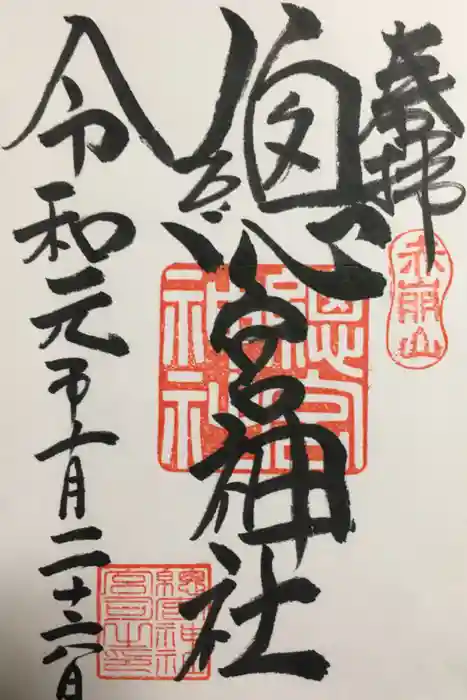 奉拝
赤崩山
總宮神社
總宮神社
總宮神社
宮司之印
令和元年十月二十六日